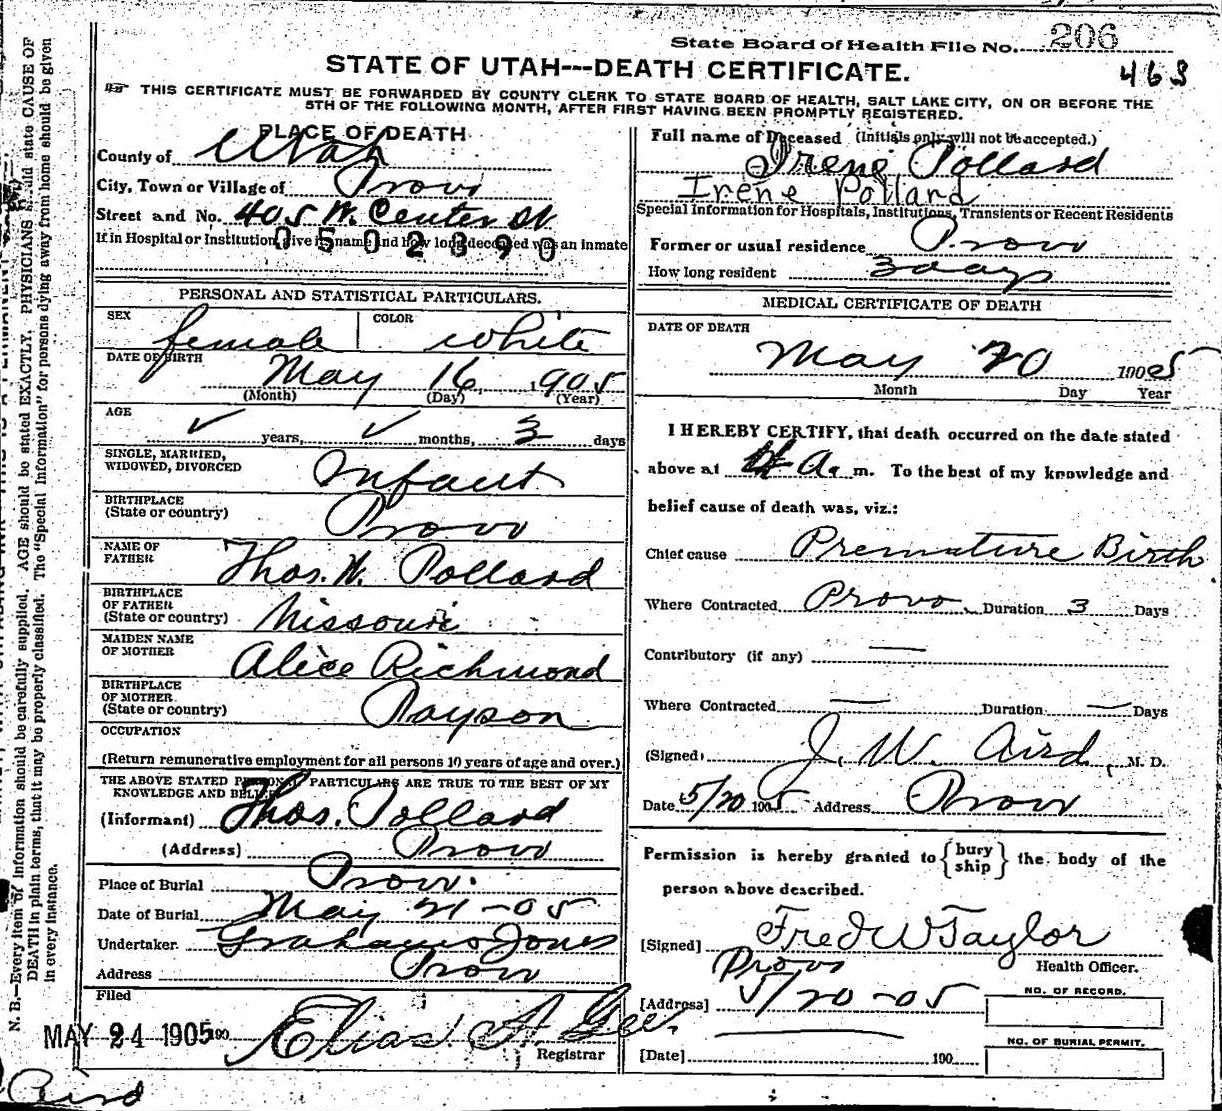 State Board of Health File No. 206
STATE OF UTAH---DEATH CERTIFICATE.
463
THIS CERTIFICATE MUST BE FORWARDED BY COUNTY CLERK TO STATE BOARD OF HEALTH, SALT LAKE CITY, ON OR BEFORE THE
5TH OF THE FOLLOWING MONTH, AFTER FIRST HAVING BEEN PROMPTLY REGISTERED.
PLACE OF DEATH
County of Utah
City, Town or Village of Provo
Street and No. 405 W. Center St
If in Hospital or Institution give its name and how long deceased was an inmate
0502390
PERSONAL AND STATISTICAL PARTICULARS.
SEX female COLOR white
DATE OF BIRTH May 16, 1905
(Month) (Day) (Year)
AGE ✓ years, ✓ months, 3 days
SINGLE, MARRIED,
WIDOWED, DIVORCED Infant
BIRTHPLACE
(State or country) Provo
NAME OF
FATHER Thos. W. Pollard
BIRTHPLACE
OF FATHER
(State or country) Missouri
MAIDEN NAME
OF MOTHER Alice Richmond
BIRTHPLACE
OF MOTHER
(State or country) Payson
OCCUPATION
(Return remunerative employment for all persons 10 years of age and over.)
THE ABOVE STATED PERSONAL PARTICULARS ARE TRUE TO THE BEST OF MY
KNOWLEDGE AND BELIEF
(Informant) Thos. Pollard
(Address) Provo
Place of Burial Provo.
Date of Burial May 21-05
Undertaker. Graham & Jones
Address Provo
Filed
MAY 24 1905 190
Elias A. Gee.
Registrar
Aird
Full name of Deceased (Initials only will not be accepted.)
Irene Pollard
Irene Pollard
Special Information for Hospitals, Institutions, Transients or Recent Residents
Former or usual residence Provo
How long resident 3 days
MEDICAL CERTIFICATE OF DEATH
DATE OF DEATH
May 20 1905
Month Day Year
I HEREBY CERTIFY, that death occurred on the date stated
above at 4 A. m. To the best of my knowledge and
belief cause of death was, viz.:
Chief cause Premature Birth
Where Contracted Provo Duration 3 Days
Contributory (if any) —
Where Contracted — Duration — Days
(Signed) J. W. Aird, M. D.
Date 5/20 1905 Address Provo
Permission is hereby granted to { bury
ship } the body of the
person above described.
[Signed] Fred W Taylor
Health Officer.
[Address] Provo
5/20-05
[Date] 190
NO. OF RECORD.
NO. OF BURIAL PERMIT.
N. B.—Every item of information should be carefully supplied. AGE should be stated EXACTLY. PHYSICIANS should state CAUSE OF
DEATH in plain terms, that it may be properly classified. The "Special Information" for persons dying away from home should be given
in every instance.